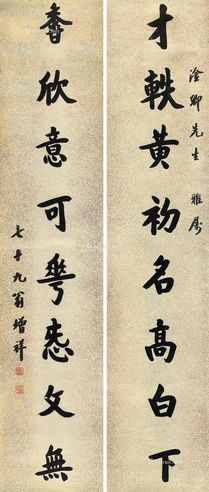 才軼黃初名高白下
淦卿先生 雅屬
香欣意可文無
七十九翁增祥